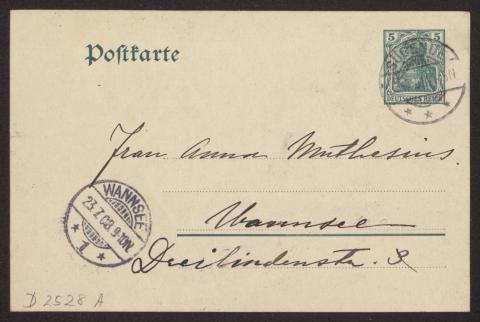 Postkarte
5
DEUTSCHES REICH
Frau Anna Muthesius.
WANNSEE
23.7.08.9-10N.
* 1 *
Wannsee
Dreilindenstr. 3
D 2528 A